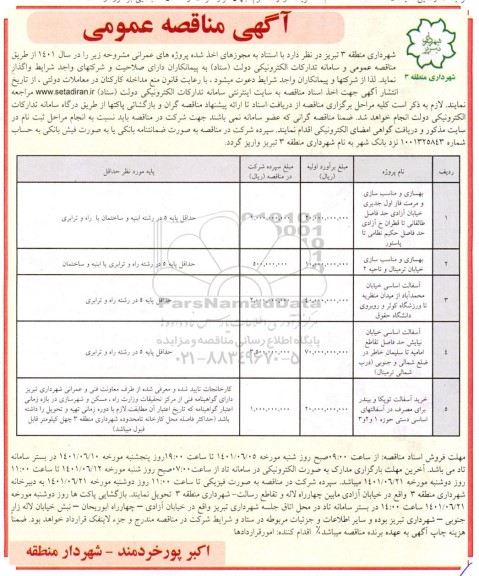 آگهی مناقصه عمومی
شهرداری منطقه ۳
شهرداری منطقه ۳ تبریز در نظر دارد با استناد به مجوزهای اخذ شده پروژه های عمرانی مشروحه زیر را در سال ۱۴۰۱ از طریق
مناقصه عمومی و سامانه تدارکات الکترونیکی دولت (ستاد) به پیمانکاران دارای صلاحیت و شرکتهای واجد شرایط واگذار
نماید. لذا از شرکتها و پیمانکاران واجد شرایط دعوت میشود ، با رعایت قانون منع مداخله کارکنان در معاملات دولتی ، از تاریخ
انتشار آگهی جهت اخذ اسناد مناقصه به سایت اینترنتی سامانه تدارکات الکترونیکی دولت (ستاد) www.setadiran.ir مراجعه
نمایند. لازم به ذکر است کلیه مراحل برگزاری مناقصه از دریافت اسناد تا ارائه پیشنهاد مناقصه گران و بازگشائی پاکتها از طریق درگاه سامانه تدارکات
الکترونیکی دولت انجام خواهد شد. ضمنا مناقصه گرانی که عضو سامانه نمی باشند جهت شرکت در مناقصه باید نسبت به انجام مراحل ثبت نام در
سایت مذکور و دریافت گواهی امضای الکترونیکی اقدام نمایند. سپرده شرکت در مناقصه به صورت ضمانتنامه بانکی یا به صورت فیش بانکی به حساب
شماره ۱۰۰۱۳۲۵۸۴۳ نزد بانک شهر به نام شهرداری منطقه ۳ تبریز واریز گردد.
ردیف
نام پروژه
مبلغ برآورد اولیه (ریال)
مبلغ سپرده شرکت در مناقصه (ریال)
پایه مورد نظر حداقل
۱
بهسازی و مناسب سازی
و مرمت فاز اول جدیری
خیابان آزادی حد فاصل
طالقانی تا قطران خ آزادی
حد فاصل حکیم نظامی تا
پاستور
حداقل پایه ۵ در رشته ابنیه و ساختمان یا راه و ترابری
۲
بهسازی و مناسب سازی
خیابان ترمینال و ناحیه ۲
۱۰,۰۰۰,۰۰۰,۰۰۰
۵۰۰,۰۰۰,۰۰۰
حداقل پایه ۵ در رشته راه و ترابری یا ابنیه و ساختمان
۳
آسفالت اساسی خیابان
محمدآباد از میدان منظریه
تا ورزشگاه کوثر و روبروی
دانشگاه حقوق
حداقل پایه ۵ در رشته راه و ترابری
۴
آسفالت اساسی خیابان
نیایش حد فاصل تقاطع
امامیه تا سلیمان خاطر در
ضلع شمالی و جنوبی (درب
شمالی ترمینال)
۷۰,۰۰۰,۰۰۰,۰۰۰
حداقل پایه ۵ در رشته راه و ترابری
۵
خرید آسفالت توپکا و بیندر
برای مصرف در آسفالتهای
اساسی دستی حوزه ۱ و ۲و۳
۲۰,۰۰۰,۰۰۰,۰۰۰
۱,۰۰۰,۰۰۰,۰۰۰
کارخانجات تایید شده و معرفی شده از طرف معاونت فنی و عمرانی شهرداری تبریز
دارای گواهینامه فنی از مرکز تحقیقات وزارت راه ، مسکن و شهرسازی در بازه زمانی
اعتبار گواهینامه که تاریخ اعتبار آن مطابقت لازم با دوره زمانی تهیه و تحویل را داشته
باشد (حداکثر فاصله محل کارخانه تامحدوده شهرداری منطقه ۳ چهل کیلومتر قابل
قبول میباشد)
پایگاه اطلاع رسانی مناقصه و مزایده
۰۲۱-۸۸۳۴۹۶۷۰-۵
ParsNamadData
مهلت فروش اسناد مناقصه: از ساعت ۰۹:۰۰ صبح روز شنبه مورخه ۱۴۰۱/۰۶/۰۵ تا ساعت ۱۹:۰۰ روز پنجشنبه مورخه ۱۴۰۱/۰۶/۱۰ در بستر سامانه
تاد می باشد. آخرین مهلت بارگزاری مدارک به صورت الکترونیکی در سامانه تاد از ساعت ۰۷:۰۰ صبح روز شنبه مورخه ۱۴۰۱/۰۶/۱۲ تا ساعت ۱۱:۰۰
روز دوشنبه مورخه ۱۴۰۱/۰۶/۲۱ میباشد. سپرده شرکت در مناقصه به صورت فیزیکی تا ساعت ۱۱:۰۰ روز دوشنبه مورخه ۱۴۰۱/۰۶/۲۱ به دبیرخانه
شهرداری منطقه ۳ واقع در خیابان آزادی مابین چهارراه لاله و تقاطع رسالت- شهرداری منطقه ۳ تحویل نمایند. بازگشایی پاکت ها روز دوشنبه مورخه
۱۴۰۱/۰۶/۲۱ ساعت ۱۴:۰۰ در بستر سامانه تاد در محل اتاق جلسه شهرداری تبریز واقع در خیابان آزادی – چهارراه ابوریحان – نبش خیابان لاله زار
جنوبی – شهرداری تبریز بوده و سایر اطلاعات و جزئیات مربوطه در ستاد و شرایط شرکت در مناقصه مندرج و جزء لاینفک قرارداد خواهد بود. ضمناً
هزینه چاپ آگهی به عهده برنده مناقصه میباشد./ اقدام کننده: امورقراردادها
اکبر پورخردمند - شهردار منطقه